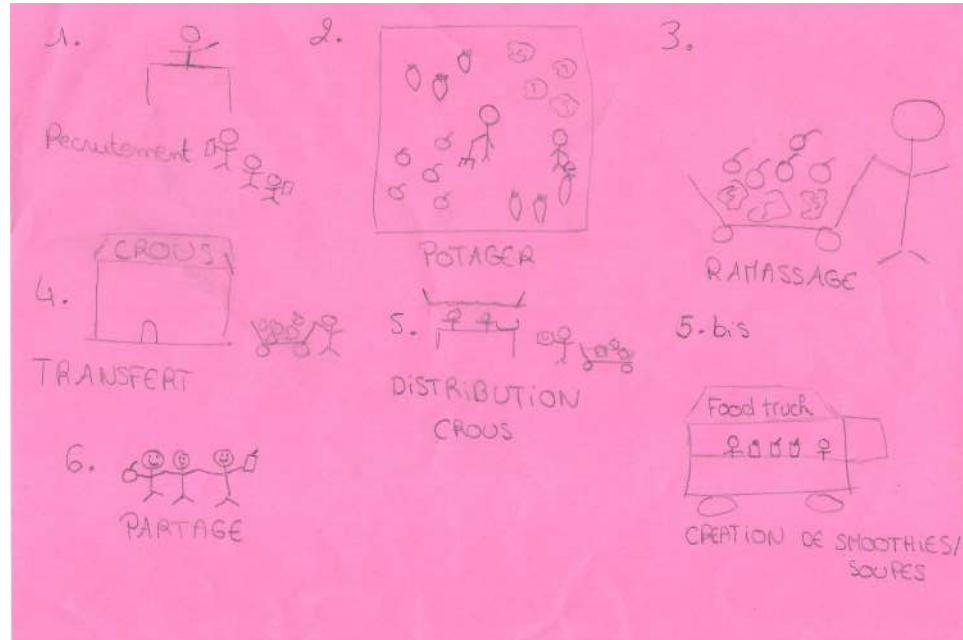 1.
Recrutement
2.
POTAGER
3.
RAMASSAGE
4.
CROUS
TRANSFERT
5.
DISTRIBUTION
CROUS
5.bis
Food truck
CREATION DE SMOOTHIES/
SOUPES
6.
PARTAGE